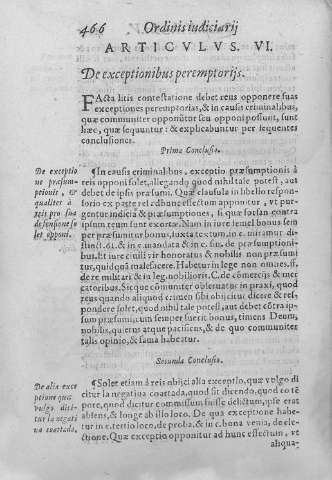 466 Ordinis iudiciarij
ARTICVLVS. VI.
De exceptionibus peremptorijs.
FActa litis contestatione debet reus opponere suas
exceptiones peremptorias, & in causis criminalibus,
quæ communiter opponũtur seu opponi possunt, sunt
hæc, quæ sequuntur: & explicabuntur per sequentes
conclusiones.
Prima Conclusio.
De exceptio
ne præsum-
ptionis, &
qualiter à
reis pro sua
defensione so
let opponi.
¶In causis criminalibus, exceptio præsumptionis à
reis opponi solet, allegando quod nihil tale potest, aut
debet de ipsis præsumi. Quæ clausula in libello respon-
sorio ex parte rei ad hunc effectum apponitur, vt pur-
gentur iudicia & præsumptiones, si quæ forsan contra
ipsum reum sunt exortæ. Nam in iure semel bonus sem
per præsumitur bonus, iuxta textum, in c. miramur. di-
stinct. 61. & in c. mandata & in c. fin. de præsumptioni-
bus. Et iure ciuili vir honoratus & nobilis non præsumi
tur, quidquã malefacere. Habetur in lege non omnes. ff.
de re militari & in leg. nobiliores. C. de cõmercijs & mer
catoribus. Sicque communiter obseruatur in praxi, quod
reus quando aliquod crimen sibi obijcitur dicere & re-
spondere solet, quod nihil tale potest, aut debet cõtra ip-
sum præsumi, cum semper fuerit bonus, timens Deum,
nobilis, quietus atque pacificus, & de quo communiter
talis opinio, & fama habetur.
Secunda Conclusio.
De alia exce
ptione quæ
vulgo dici-
tur la negati
ua coartada.
¶Solet etiam à reis obijci alia exceptio, quæ vulgo di
citur la negatiua coartada, quod sit dicendo, quod eo tẽ
pore, quo dicitur commissum fuisse delictum, ipse erat
absens, & longe ab illo loco. De qua exceptione habe-
tur in c. tertio loco, de proba. & in c. bona. venia, de ele-
ctione. Quæ exceptio opponitur ad hunc effectum, vt
aliqua-